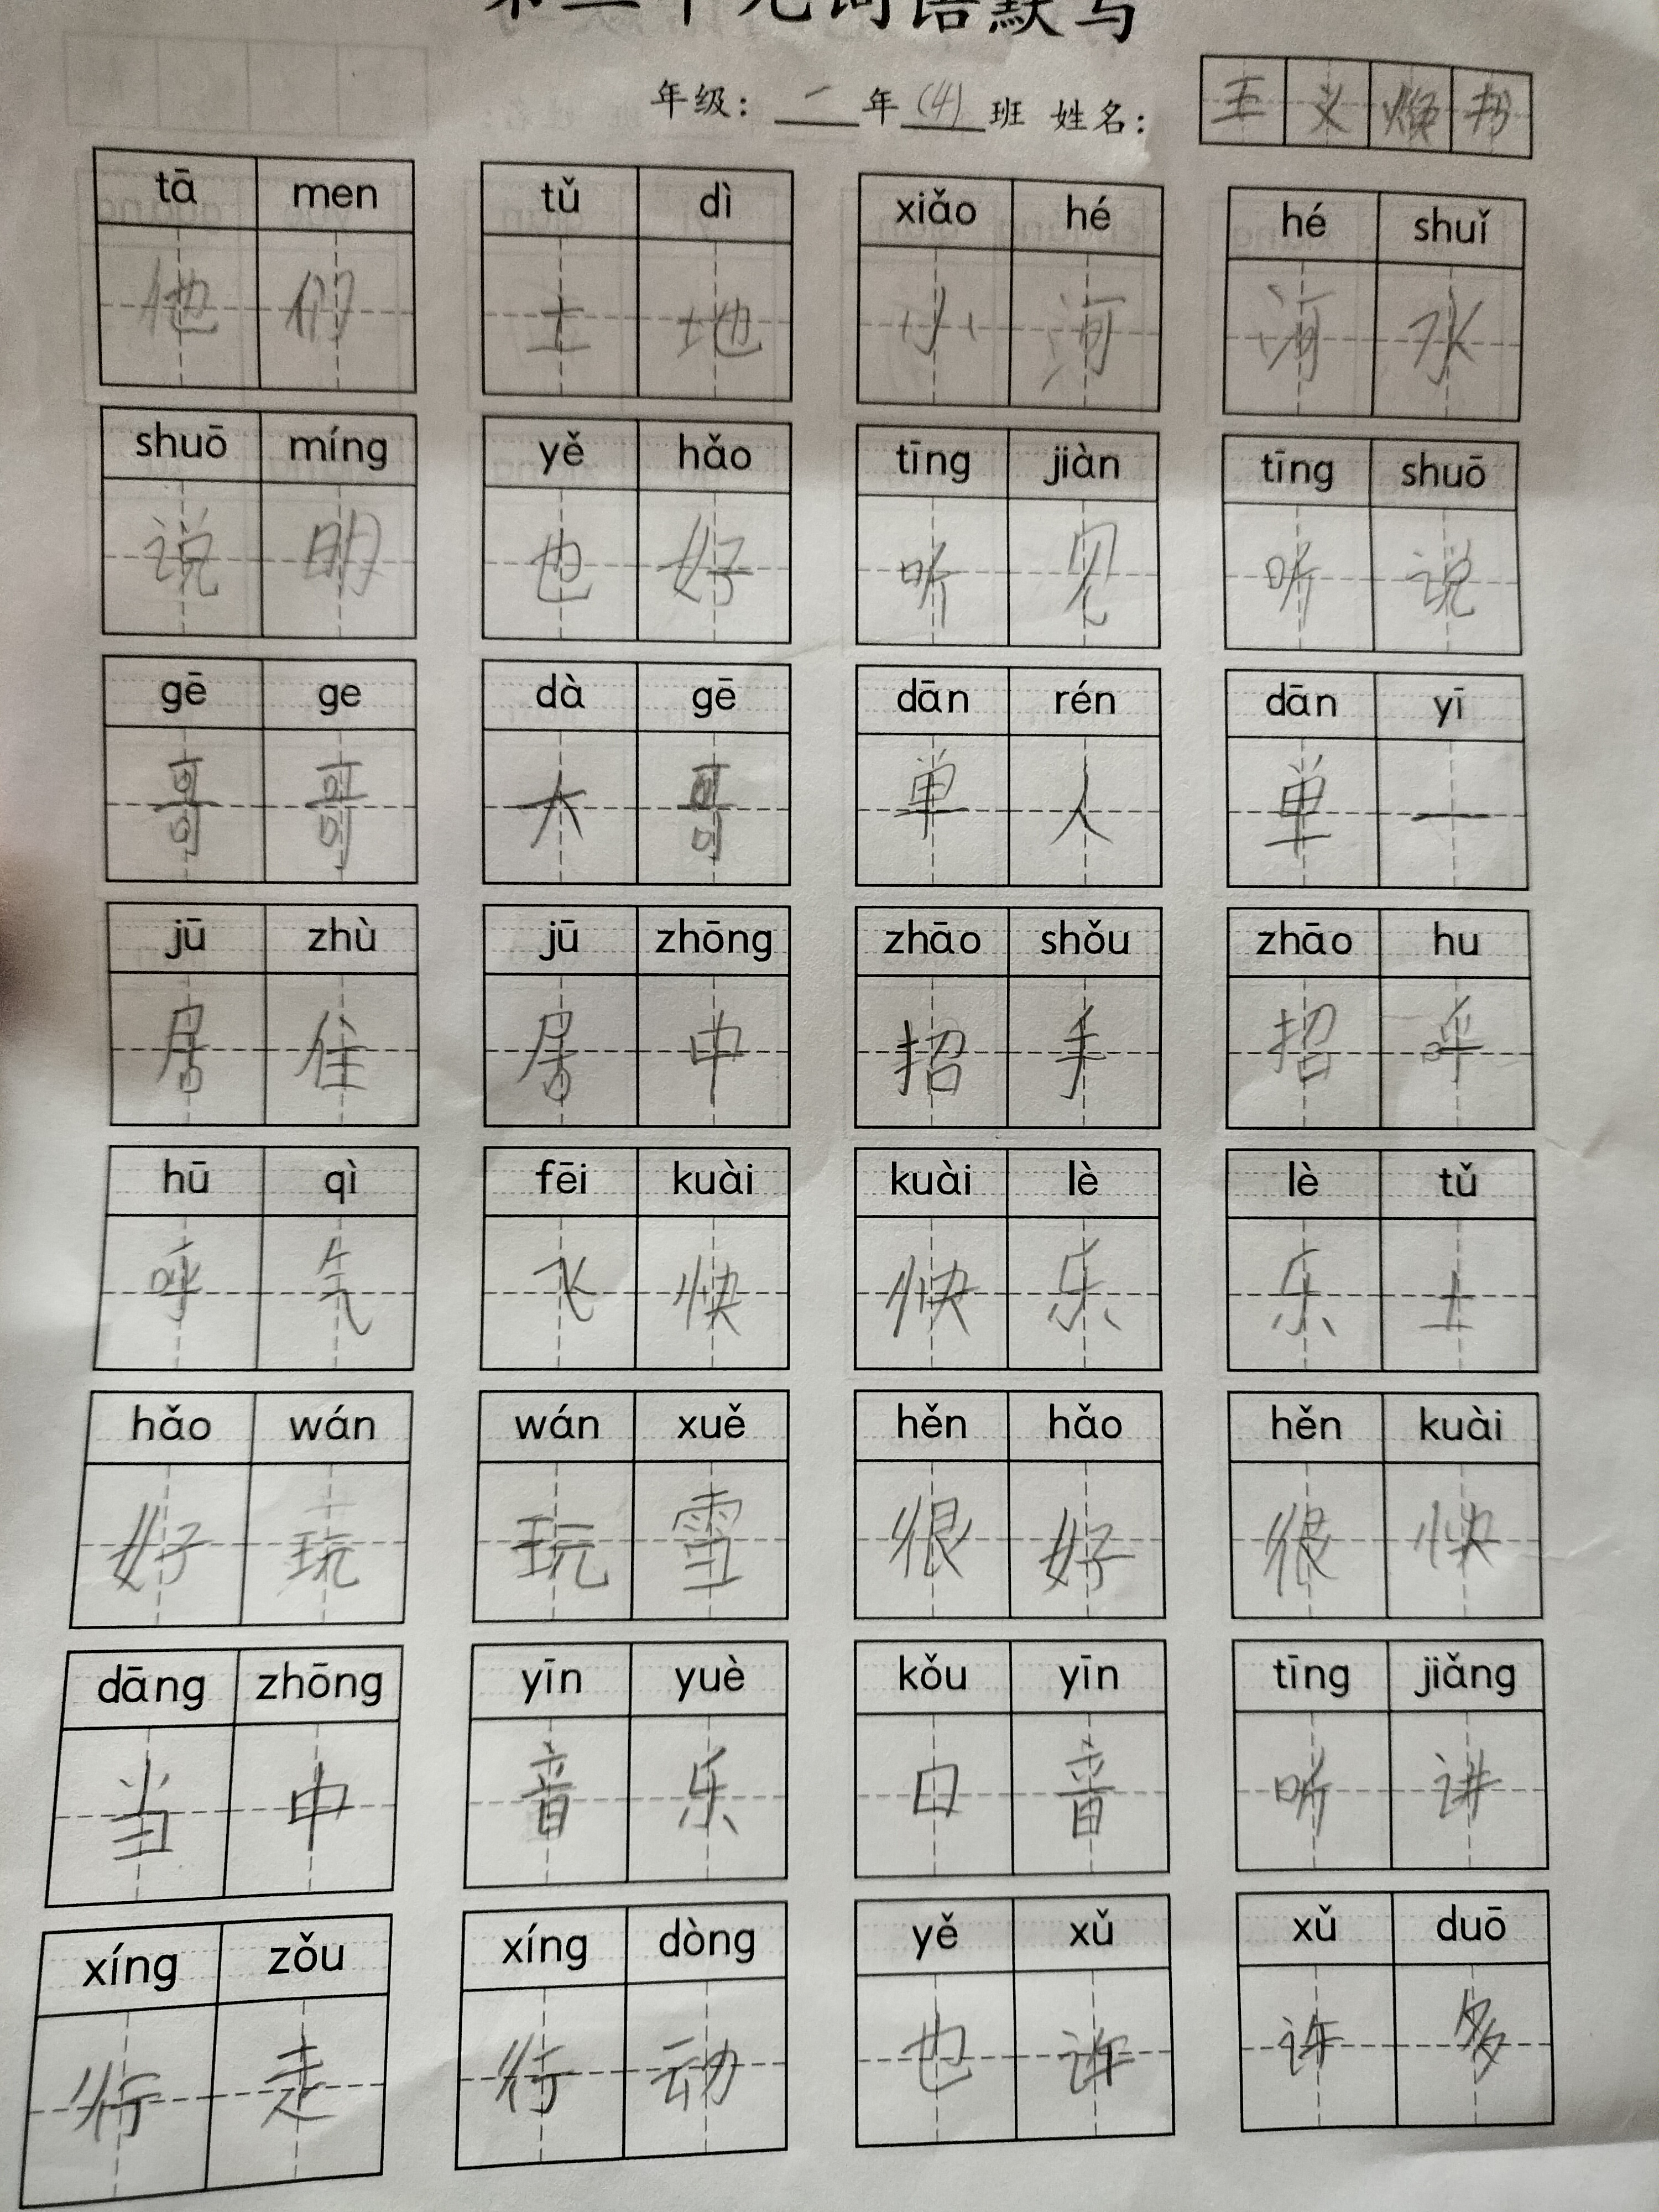 第二单元词语默写
年级：二年(4)班 姓名：王义
tā men tǔ dì xiǎo hé hé shuǐ
他们 土地 小河 河水
shuō míng yě hǎo tīng jiàn tīng shuō
说明 也好 听见 听说
gē ge dà gē dān rén dān yī
哥哥 大哥 单人 单一
jū zhù jū zhōng zhāo shǒu zhāo hu
居住 居中 招手 招呼
hū qì fēi kuài kuài lè lè tǔ
呼气 飞快 快乐 乐土
hǎo wán wán xuě hěn hǎo hěn kuài
好玩 玩雪 很好 很快
dāng zhōng yīn yuè kǒu yīn tīng jiǎng
当中 音乐 口音 听讲
xíng zǒu xíng dòng yě xǔ xǔ duō
行走 行动 也许 许多